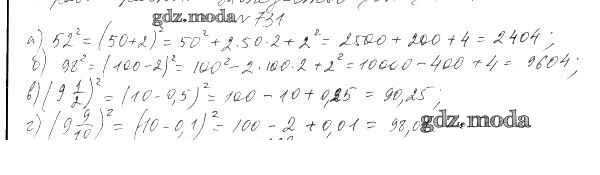 gdz.moda № 731
а) 52² = (50+2)² = 50² + 2·50·2 + 2² = 2500 + 200 + 4 = 2404;
б) 98² = (100-2)² = 100² - 2·100·2 + 2² = 10000 - 400 + 4 = 9604;
в) (9 1/2)² = (10-0,5)² = 100 - 10 + 0,25 = 90,25;
г) (9 9/10)² = (10-0,1)² = 100 - 2 + 0,01 = 98,0 gdz.moda